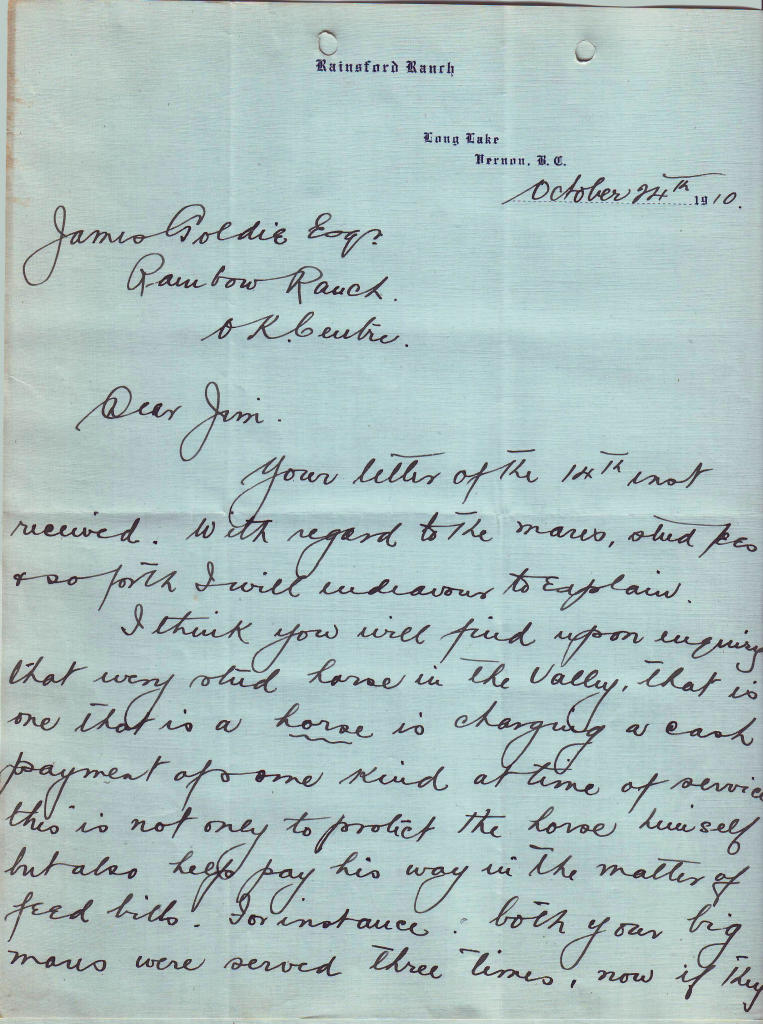 Rainsford Ranch
Long Lake
Vernon, B. C.
October 24th 1910.
James Goldie Esqr
Rainbow Ranch.
O K. Centre.
Dear Jim.
Your letter of the 14th inst
received. With regard to the mares, stud fees
& so forth I will endeavour to Explain.
I think you will find upon enquiry
that every stud horse in the Valley, that is
one that is a horse is charging a cash
payment of some kind at time of service
this is not only to protect the horse himself
but also help pay his way in the matter of
feed bills. For instance. both your big
mares were served three times, now if they